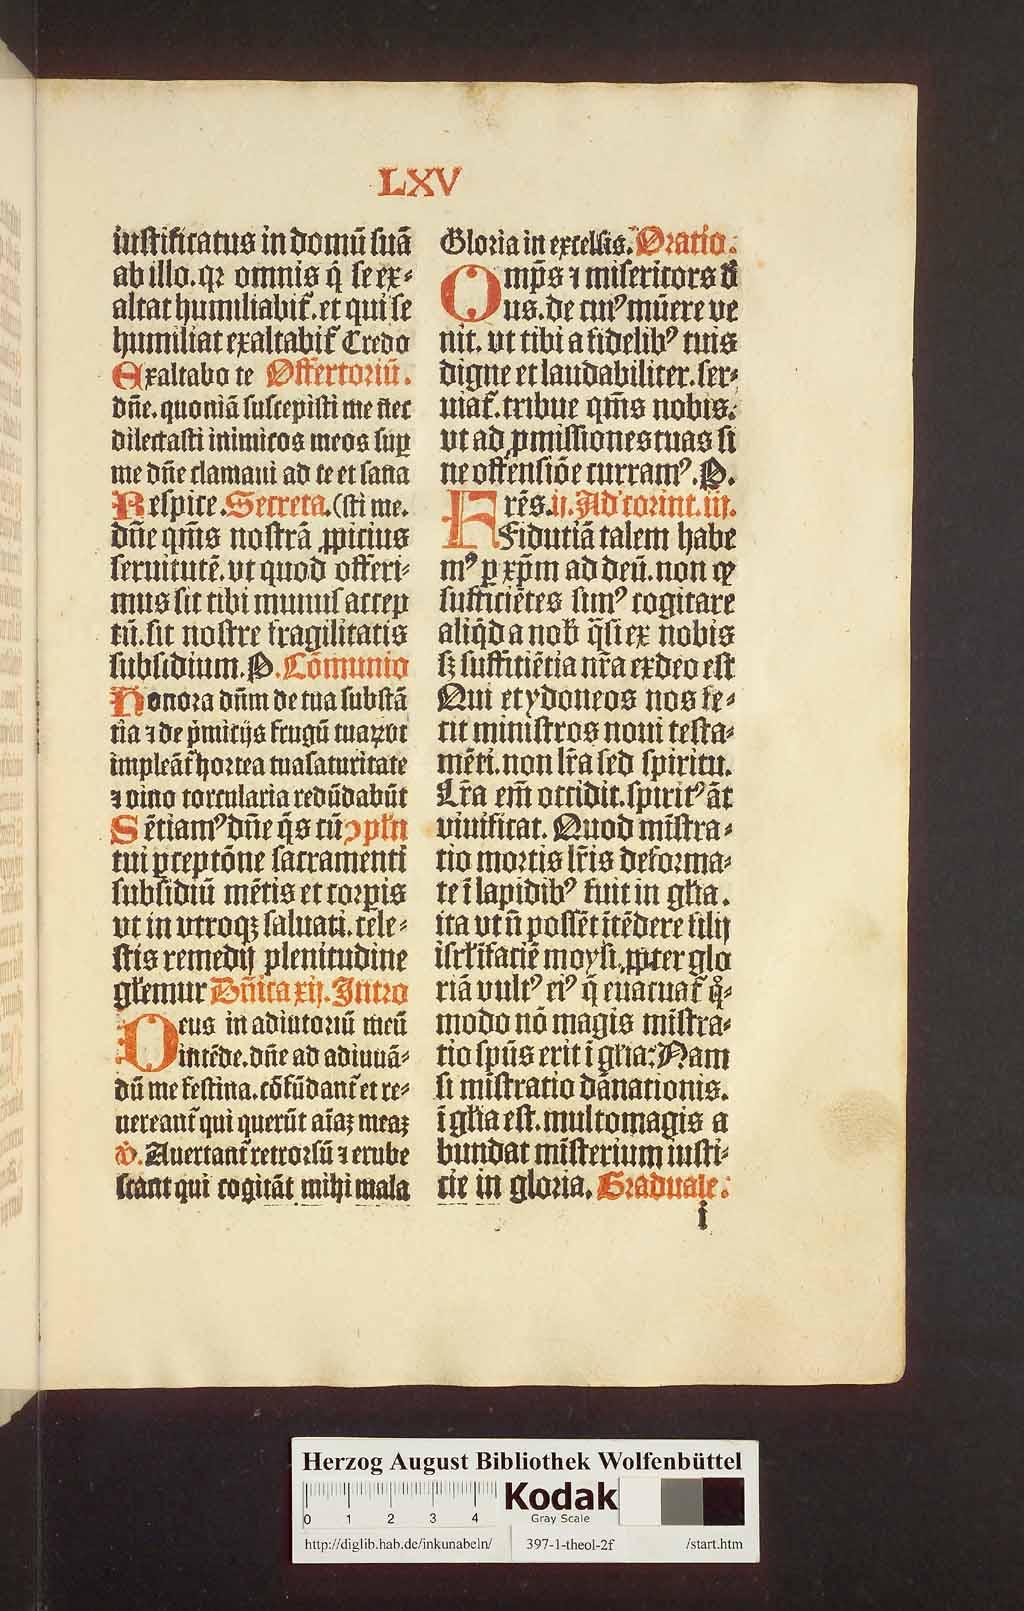 LXV
iustificatus in domū suā
ab illo. qꝛ omnis q̄ se ex⸗
altat humiliabit᷑. et qui se
humiliat exaltabit᷑ Credo
Exaltabo te Offertoriū.
dn̄e. quoniā suscepisti me n̄ec
dilectasti inimicos meos sup̄
me dn̄e clamaui ad te et sana
Respice. Secreta. (sti me.
dn̄e qm̄s nostrā ꝓpicius
seruitutē. vt quod offeri⸗
mus sit tibi munus accep
tū. sit nostre fragilitatis
subsidium. P. Cōmunio
Honora dn̄m de tua substā
tia ⁊ de p̄mitijs frugū tuaꝝ vt
impleāt᷑ horrea tua saturitate
⁊ vino torcularia redūdabūt
Sētiamꝰ dn̄e q̄s tū ꝯpl̄n
tui ꝑceptōne sacramenti
subsidiū mētis et corꝑis
vt in vtroqꝫ saluati. cele⸗
stis remedij plenitudine
gl̄emur Dn̄ica xij. Intro
Deus in adiutoriū meū
intēde. dn̄e ad adiuuā⸗
dū me festina. cōfūdant᷑ et re⸗
uereant᷑ qui querūt aīaꝫ meaꝫ
V̇. Auertant᷑ retrorsū ⁊ erube
scant qui cogitāt mihi mala
Gloria in excelsis. Oratio.
Omp̄s ⁊ misericors d̄
us. de cuiꝰ mūere ve
nit. vt tibi a fidelibꝰ tuis
digne et laudabiliter. ser⸗
uiat᷑. tribue qm̄s nobis.
vt ad ꝓmissiones tuas si
ne offensiōe curramꝰ. P.
Frēs. ij. Ad corint. iij.
Fidutiā talem habe
mꝰ ꝑ xp̄m ad deū. non ꝙ
sufficiētes simꝰ cogitare
aliq̇d a nob̄ q̄si ex nobis
sꝫ suffitiētia nr̄a ex deo est
Qui et ydoneos nos fe⸗
cit ministros noui testa⸗
mēti. non lr̄a sed spiritu.
Lr̄a em̄ occidit. spiritꝰ āt
viuificat. Quod mīstra⸗
tio mortis lr̄is deforma⸗
te ī lapidibꝰ fuit in gl̄ia.
ita vt n̄ possēt ītēdere filij
isrl̄ ī faciē moysi, ꝓpter glo
riā vultꝰ eiꝰ q̄ euacuat᷑ qͦ⸗
modo nō magis mīstra⸗
tio spūs erit ī gl̄ia: Nam
si mīstratio dānationis.
ī gl̄ia est. multomagis a
bundat mīsterium iusti⸗
cie in gloria. Graduale:
i
Herzog August Bibliothek Wolfenbüttel
0 1 2 3 4
Kodak
Gray Scale
http://diglib.hab.de/inkunabeln/ 397-1-theol-2f /start.htm